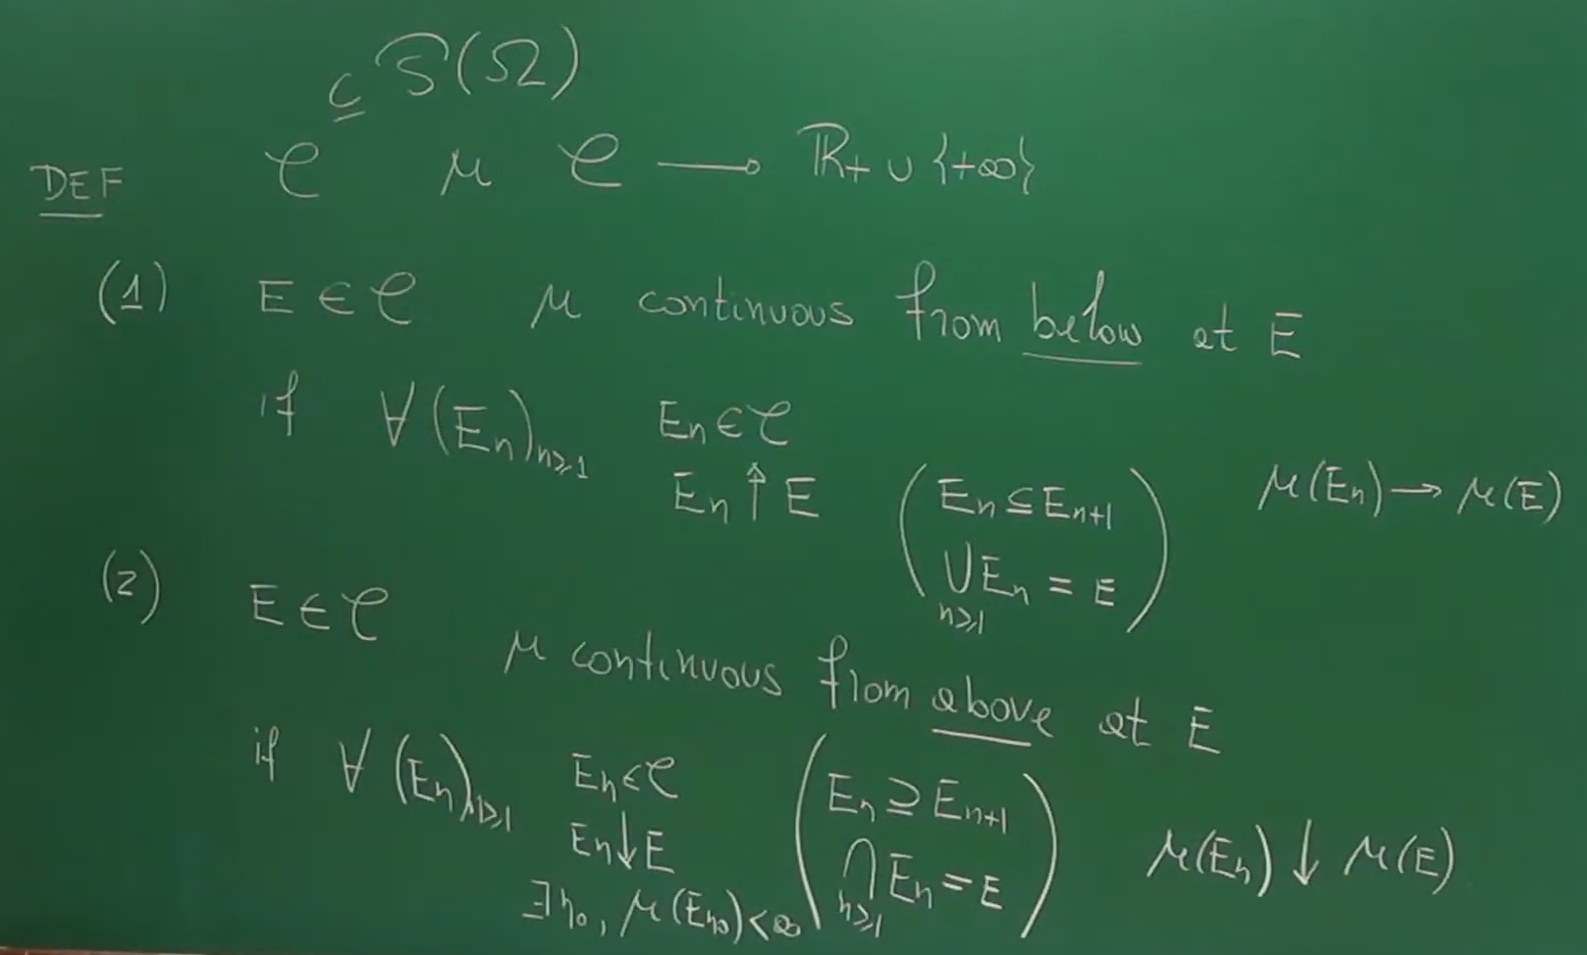 ⊆ 𝒫(Ω)
DEF 𝒞 μ 𝒞 ⟶ ℝ₊ ∪ {+∞}
(1) E ∈ 𝒞 μ continuous from below at E
if ∀ (Eₙ)ₙ≥1 Eₙ ∈ 𝒞
Eₙ ↑ E ( Eₙ ⊆ Eₙ₊₁ μ(Eₙ) → μ(E)
⋃ₙ≥1 Eₙ = E )
(2) E ∈ 𝒞
μ continuous from above at E
if ∀ (Eₙ)ₙ≥1 Eₙ ∈ 𝒞 ( Eₙ ⊇ Eₙ₊₁
Eₙ ↓ E μ(Eₙ) ↓ μ(E)
∃ n₀, μ(Eₙ₀) < ∞ ⋂ₙ≥1 Eₙ = E )